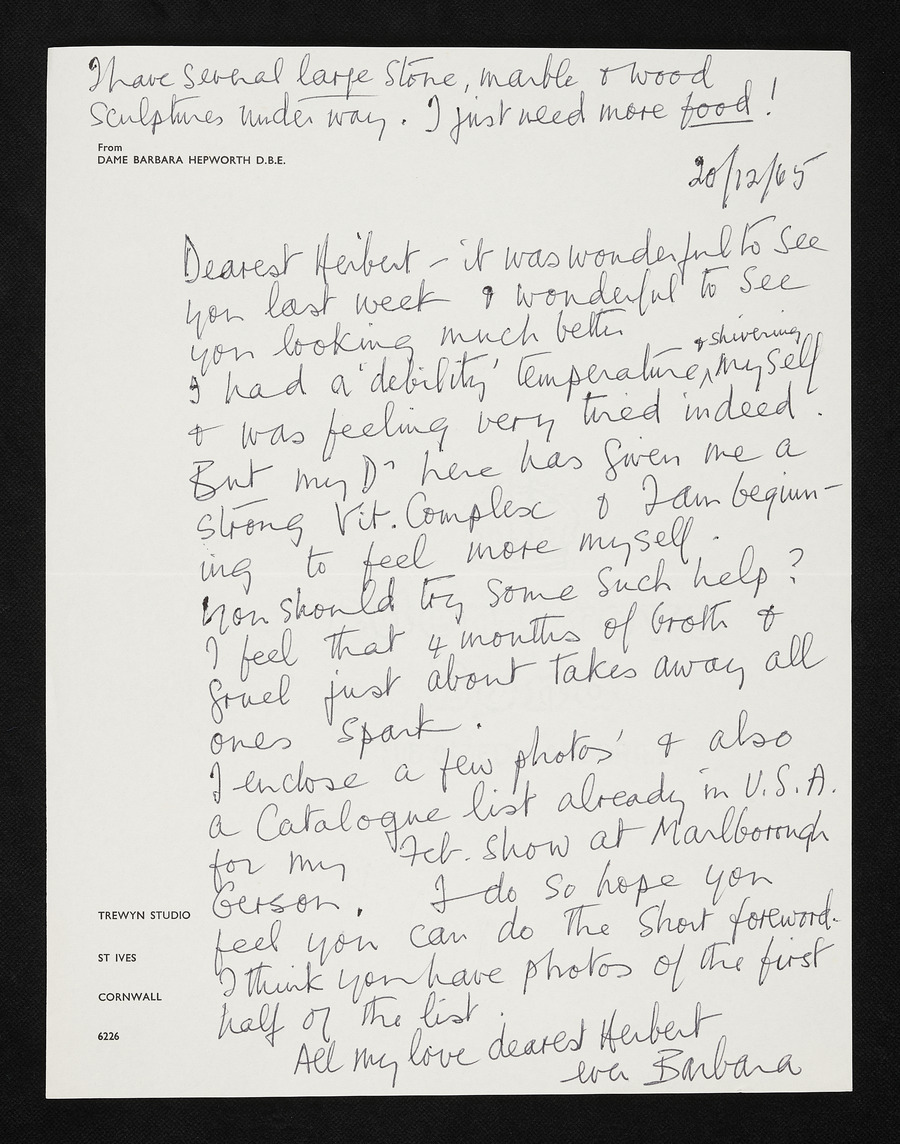 I have several large stone, marble & wood
sculptures under way. I just need more food!
From
DAME BARBARA HEPWORTH D.B.E.
20/12/65
Dearest Herbert – it was wonderful to see
you last week & wonderful to see
you looking much better
& shivering
I had a 'debility' temperature, myself
& was feeling very tired indeed.
But my Dr here has given me a
strong Vit. Complex & I am beginn-
ing to feel more myself.
You should try some such help?
I feel that 4 months of broth &
gruel just about takes away all
ones spark.
I enclose a few photos' & also
a Catalogue list already in U.S.A.
for my Feb. show at Marlborough
Gerson. I do so hope you
feel you can do the short foreword.
I think you have photos of the first
half of the list.
All my love dearest Herbert
ever Barbara
TREWYN STUDIO
ST IVES
CORNWALL
6226